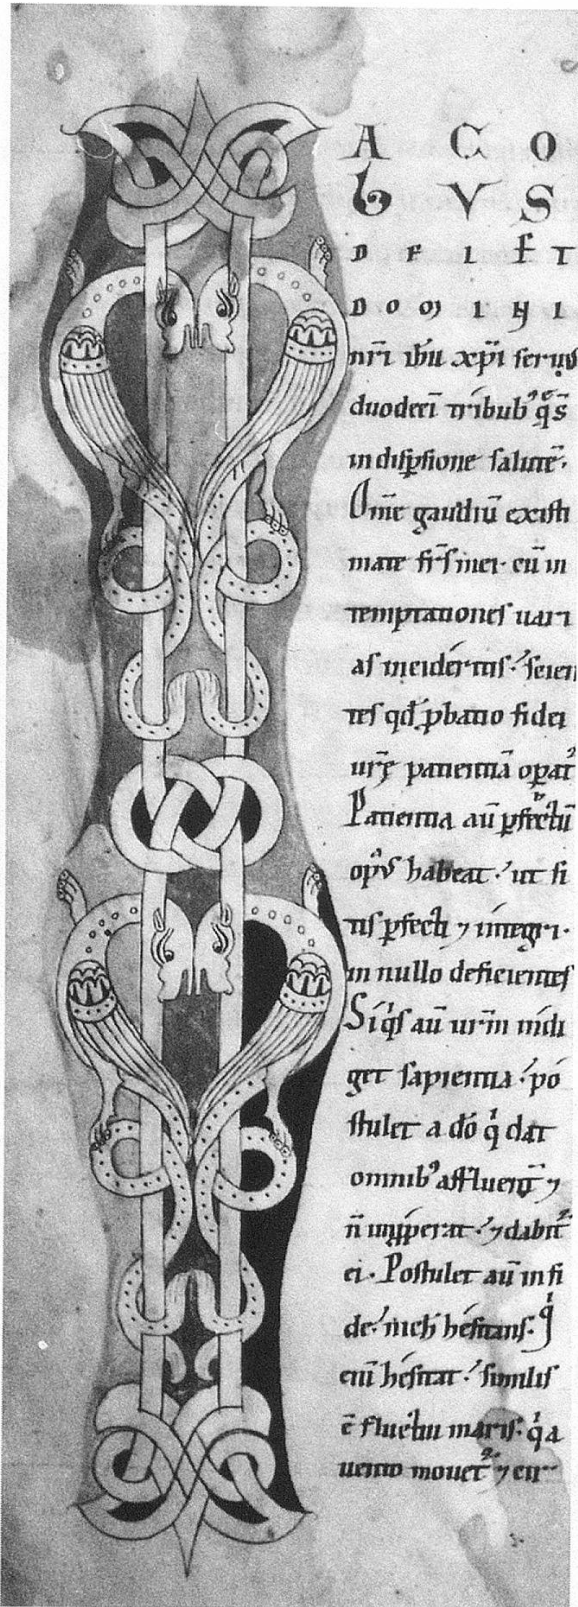 A C O
b V S
D E I E T
D O M I N I
nr̄i ihū xp̄i seruus
duodecī tribub' q̄ s̄
in disp̄sione salutē·
Om̄e gaudiū existi
mate fr̄s mei· cū in
temptationes uari
as incidéritis·' scien
tes qd̄ ꝓbatio fidei
urē̄ patientiā opat᷑
Patientia aū ꝑfectū
opus habeat·' ut si
tis ꝑfecti ⁊ íntegri·
in nullo deficientes
Síqͥs aū ur̄m índi
get sapientia·' pó
stulet a dō qͥ dat
omnib' affluent̄ ⁊
n̄ inꝓperat·' ⁊ dabit᷑
ei· Postulet aū in fi
de·' nichil hésitans· qͥ
eni hésitat·' similis
ē fluctui maris· qͥ a
uento mouet᷑ ⁊ cir